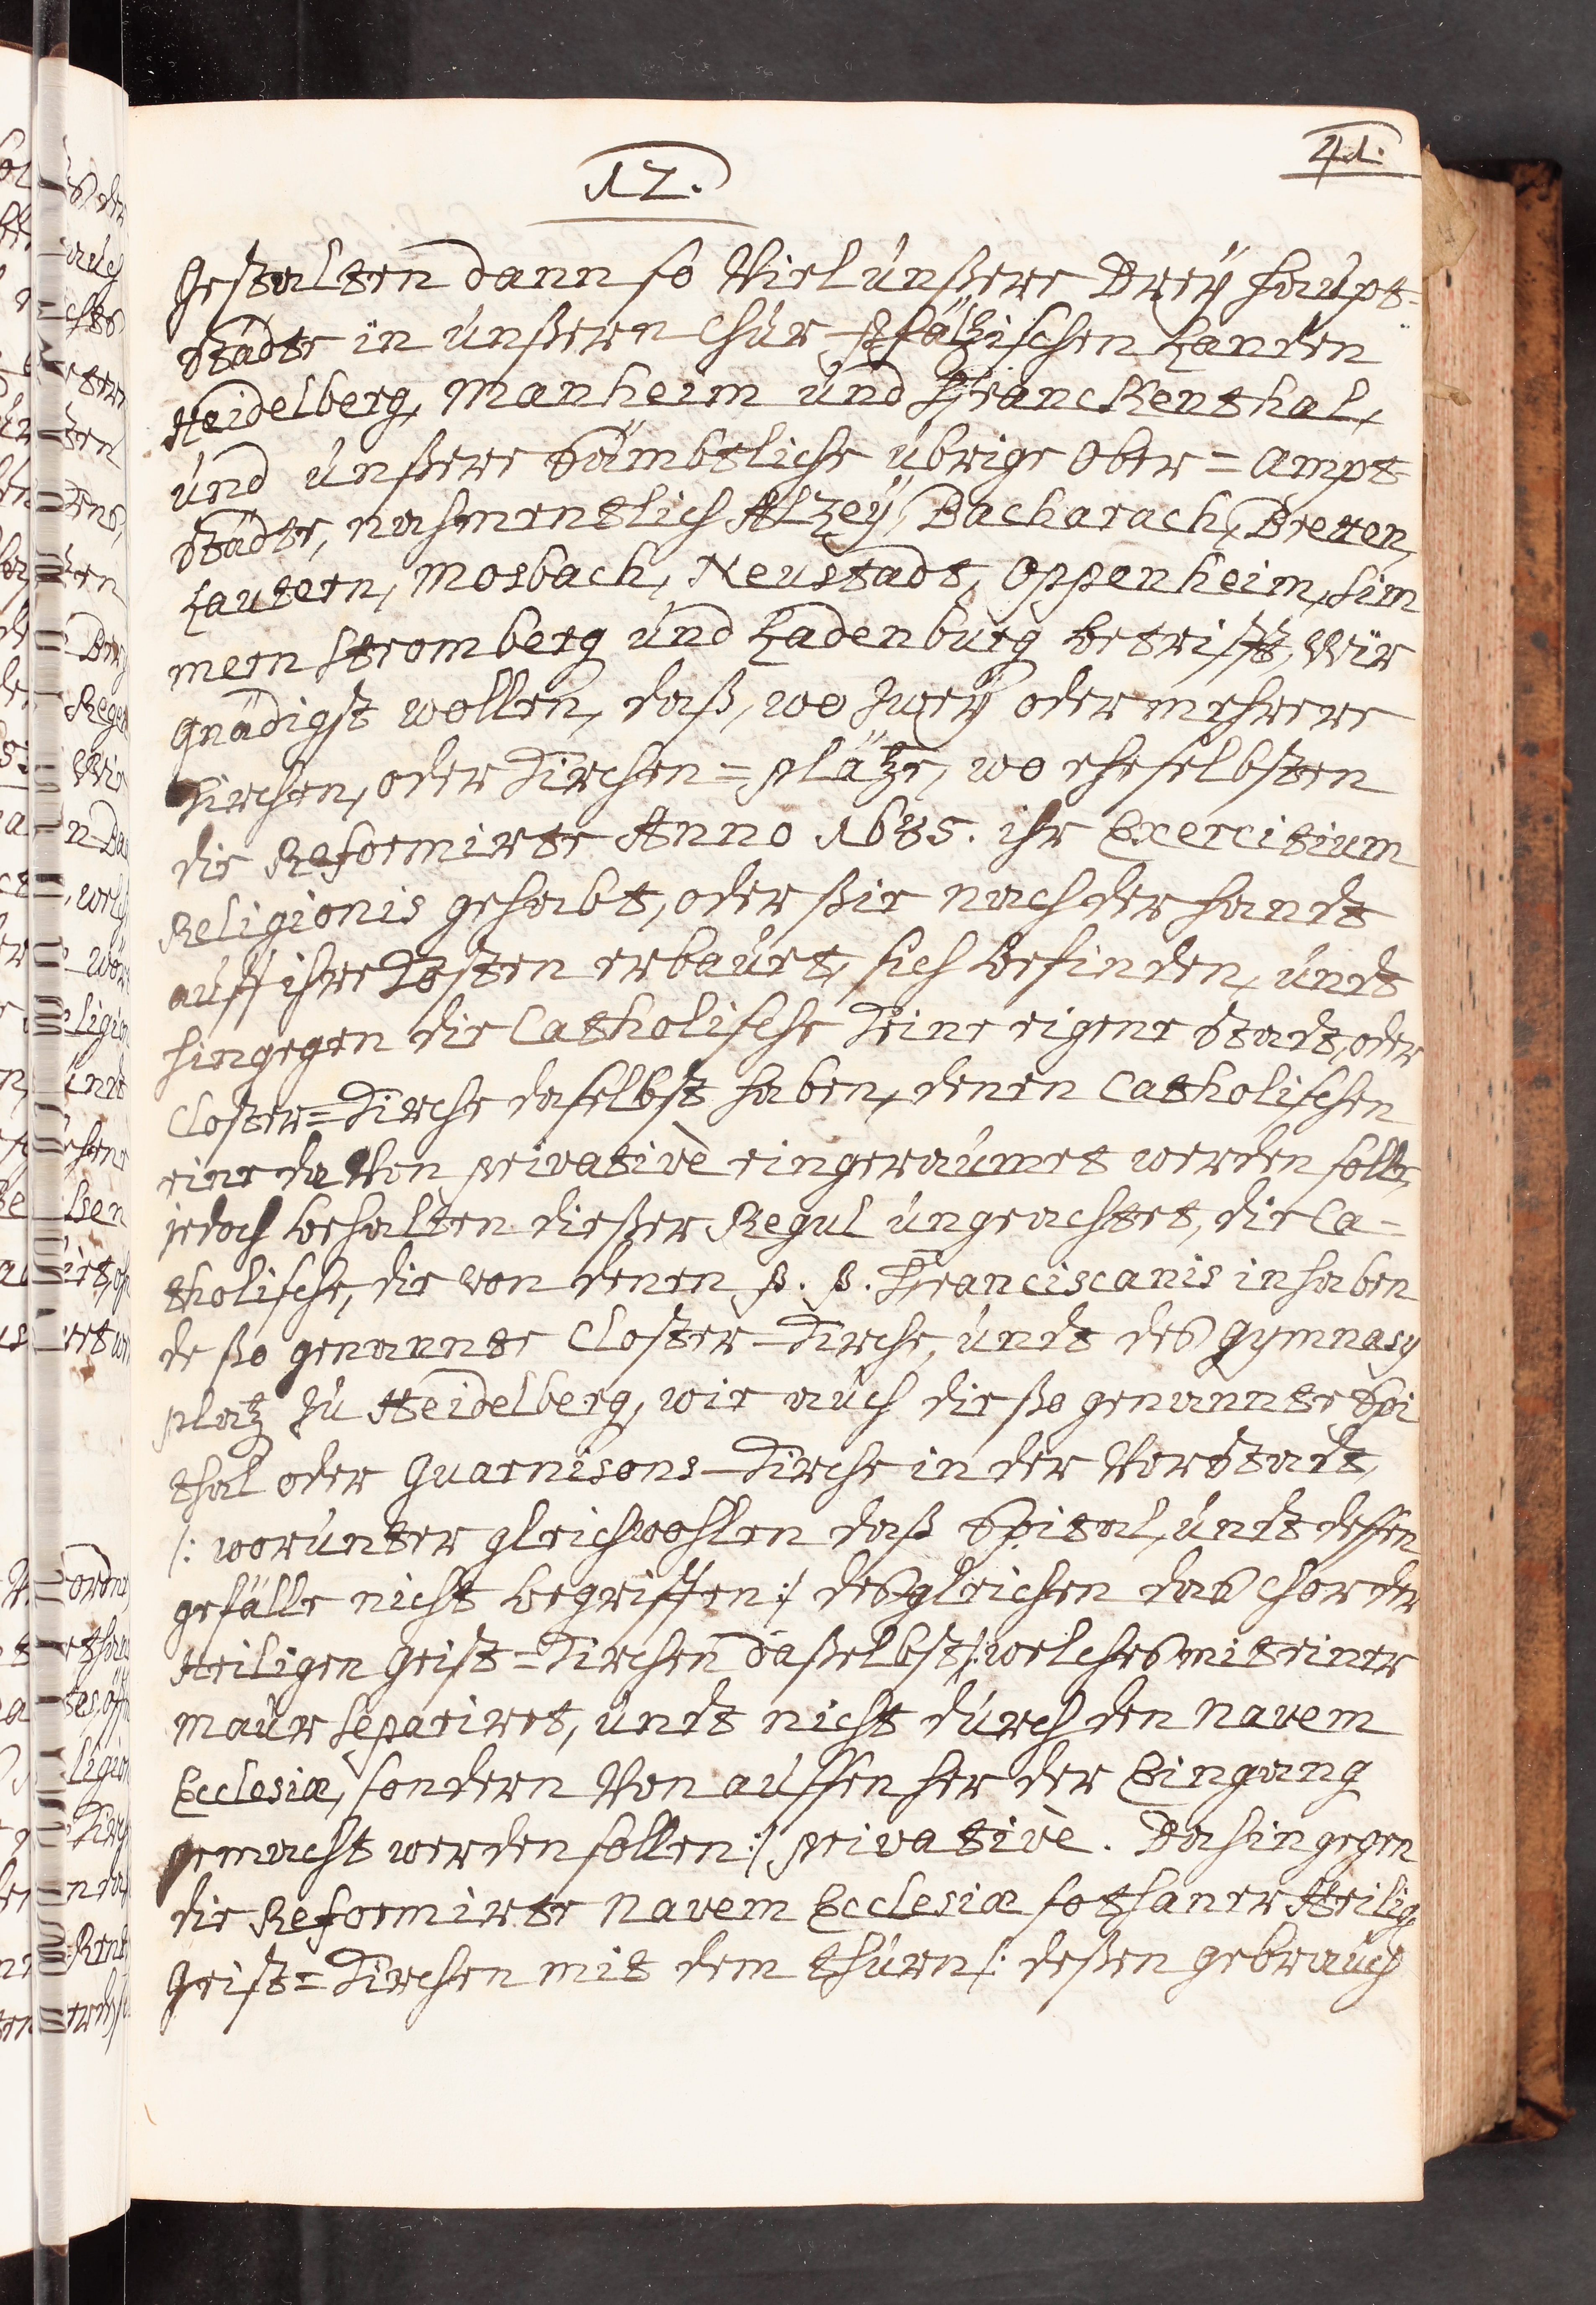 41.
12.
Gestalten dann so Viel unßere Dreÿ haupt-
städte in unßern Chur-Pfältzischen Landen
Heidelberg, Manheim und Franckenthal,
und unßere sämbtliche übrige Ober=Ampt
städte, nahmentlich Altzeÿ, Bacharach, Bretten,
Lautern, Mosbach, Neustadt, Oppenheim, Sim
mern Stromberg und Ladenburg betrifft, Wir
gnädigst wollen, daß, wo zweÿ oder mehrere
Kirchen, oder Kirchen=plätze, wo eheselbsten
die Reformirte Anno 1685. ihr Exercitium
Religionis gehabt, oder ßie nach der handt
auff ihre Kosten erbauet, sich befinden, undt
hingegen die Catholische Keine eigene Stadt, oder
Closter=Kirche daselbst haben, denen Catholischen
eine da Von privativè eingeraumet werden solle,
jedoch behalten dießer Regul ungeachtet, die Ca-
tholische, die von denen P. P. Franciscanis inhaben
de ßo genannte Closter-Kirche, undt des Gymnasy
platz zu Heidelberg, wie auch die ßo genannte Spi
thal oder Guarnisons-Kirche in der Vorstadt,
/: worunter gleichwohlen daß Spital, undt dessen
gefälle nicht begriffen :/ desgleichen das Chor der
Heiligen Geist=Kirchen daßelbst /: welches mit einer
Maur separiret, undt nicht durch den navem
Ecclesiæ, sondern Von aussen her der Eingang
gemacht werden sollen :/ privativè. Dahingegen
die Reformirte Navem Ecclesiæ sothaner Heilig
Geist=Kirchen mit dem thurn /: deßen gebrauch